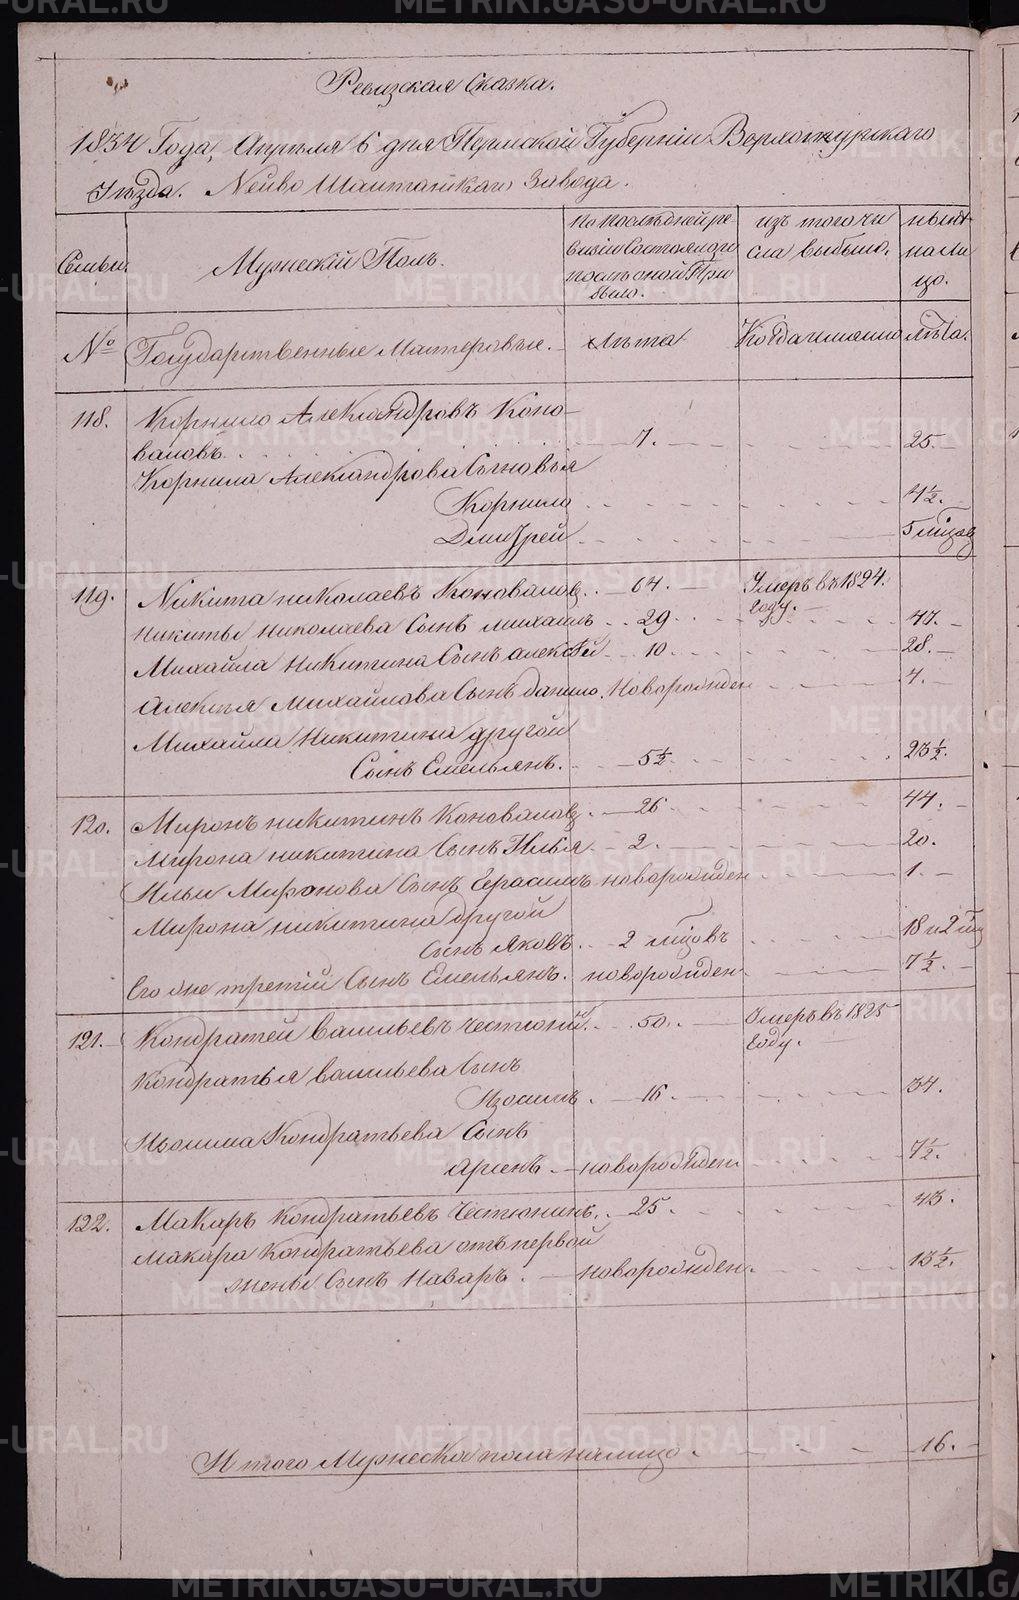 Ревизская Сказка.
1834 Года, Апреля 6 дня Пермской Губернiи Верхотурскаго
Уѣзда. Нейво Шайтанскаго Завода.
Семьи.
Мужескiй Полъ.
По последней ре-
визiи Состояло и
послѣ оной При
было.
изъ того чи
сла выбыло.
нынѣ
на ли
цо.
№
Государственные Мастеровые.
лѣта
Когда именно
лѣта.
118. Корнило Александровъ Коно-
валовъ. 7. 25.
Корнила Александрова Сыновья
Корнило 4½.
Дмитрей 5 мѣсяц
119. Никита николаевъ Коновалов. 64. Умеръ въ 1824.
году.
Никиты николаева Сынъ михаилъ 29. 47.
Михайла никитина Сынъ алексѣй 10. 28.
Алексѣя михайлова Сынъ данило, Новорожден 4.
Михайла никитина другой
Сынъ Емельянъ. 5½ 23½.
120. Миронъ никитинъ Коновалов. 26 44.
Мирона никитина Сынъ Илья 2. 20.
Ильи Миронова Сынъ Герасимъ новорожден 1.
Мирона никитина другой
Сынъ Яковъ. 2 мѣсцовъ 18 и 2 мц
Его же третiй Сынъ Емельянъ. новорожден 7½.
121. Кондратей васильевъ Честюнин. 50. Умеръ въ 1825
году.
Кондратья васильева Сынъ
Изосимъ. 16. 34.
Изосима Кондратьева Сынъ
новорожден 7½.
122. Макаръ кондратьевъ Честюнинъ. 25. 43.
Макара Кондратьева отъ первой
жены Сынъ Назаръ. новорожден. 13½.
Итого Мужеска пола налицо. 16.
METRIKI.GASO-URAL.RU